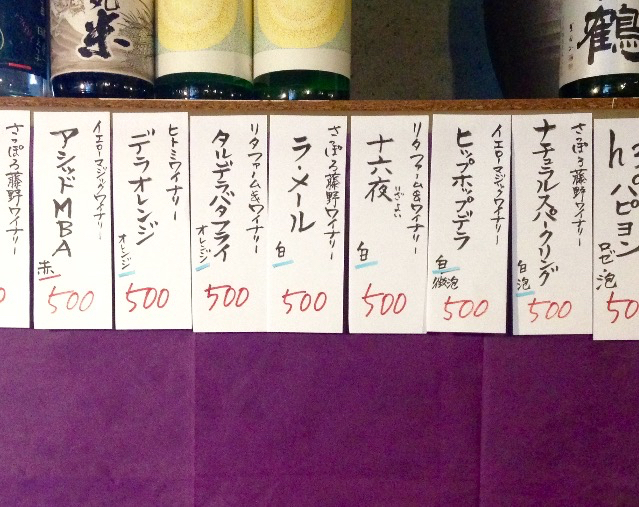 鶴
米
h
パピヨン
ロゼ・泡
50
さっぽろ藤野ワイナリー
ナチュラルスパークリング
白
泡
500
イエローマジックワイナリー
ヒップホップデラ
白・微泡
500
リタファーム&ワイナリー
十六夜
いざよい
白
500
さっぽろ藤野ワイナリー
ラ・メール
白
500
リタファーム&ワイナリー
タルデラバタフライ
オレンジ
500
ヒトミワイナリー
デラオレンジ
オレンジ
500
イエローマジックワイナリー
アシッドMBA
赤
500
さっぽろ藤野ワイナリー
0